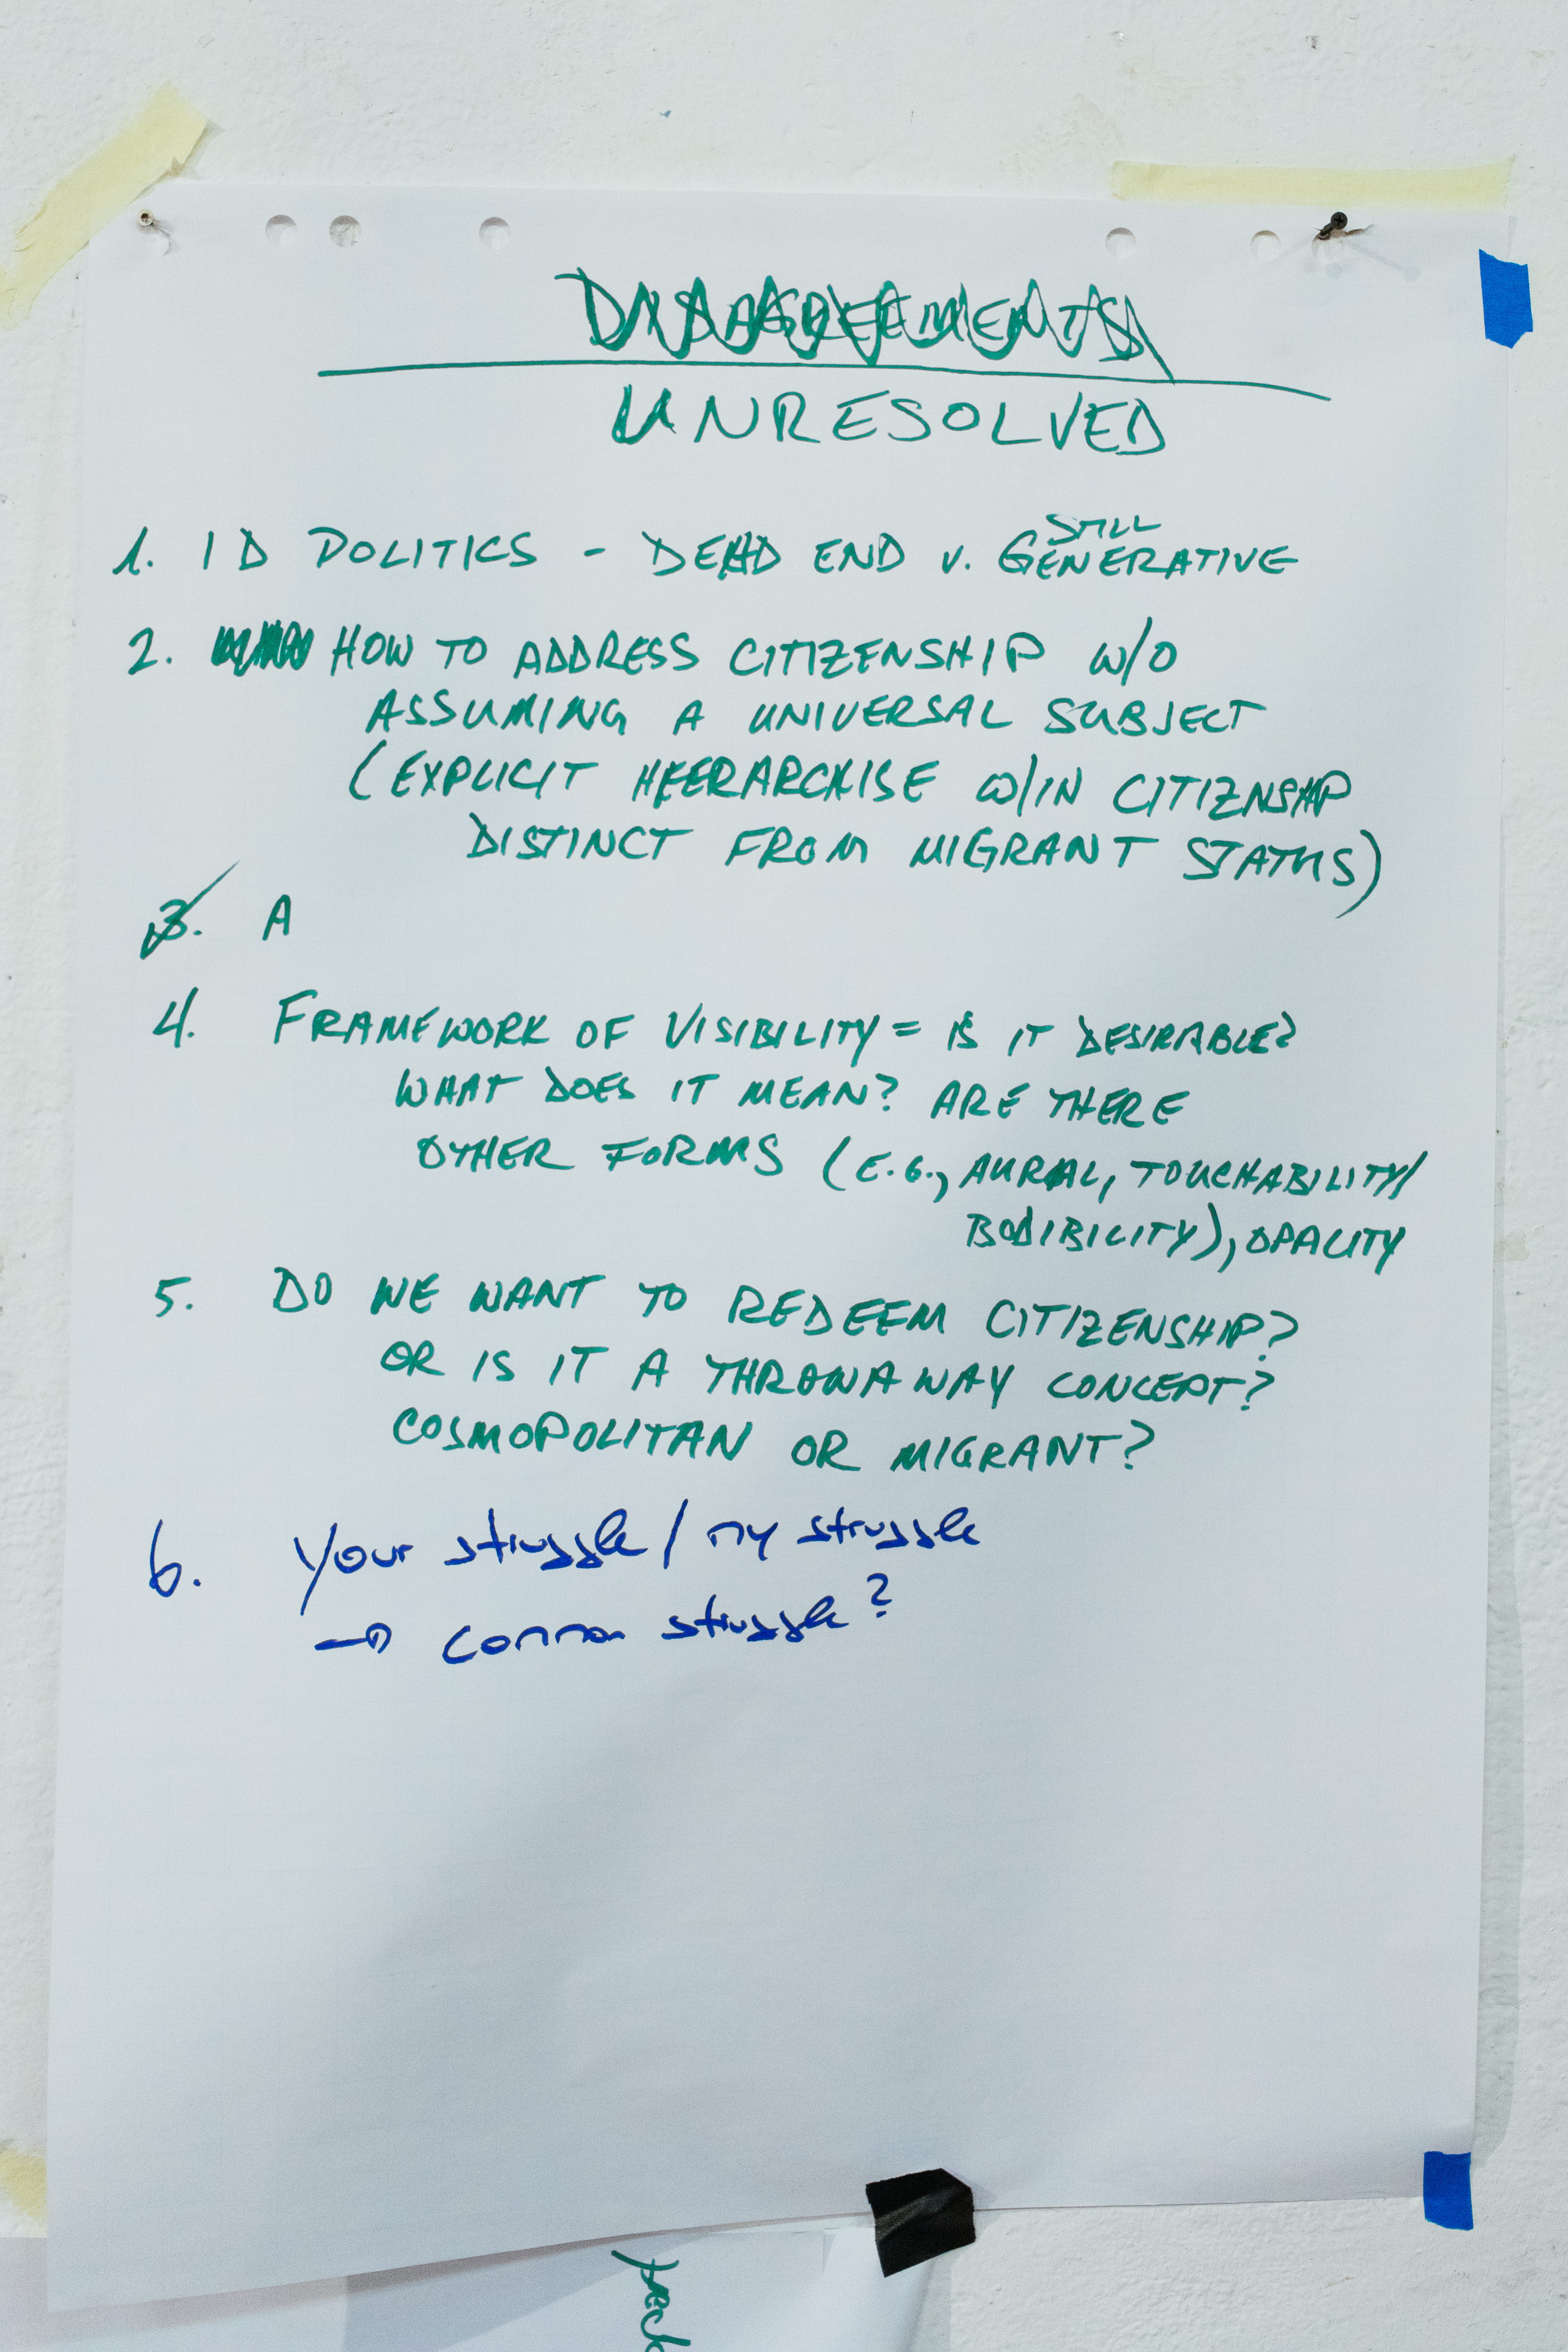 DISAGREEMENTS
UNRESOLVED
1. ID POLITICS - DEAD END v. STILL GENERATIVE
2. HOW TO ADDRESS CITIZENSHIP W/O
ASSUMING A UNIVERSAL SUBJECT
(EXPLICIT HEERARCHISE W/IN CITIZNSHIP
DISTINCT FROM MIGRANT STATUS)
3. A
4. FRAMEWORK OF VISIBILITY = IS IT DESIRABLE?
WHAT DOES IT MEAN? ARE THERE
OTHER FORMS (E.G., AURAL, TOUCHABILITY/
BODIBILITY), OPALITY
5. DO WE WANT TO REDEEM CITIZENSHIP?
OR IS IT A THROWAWAY CONCEPT?
COSMOPOLITAN OR MIGRANT?
6. Your struggle / my struggle
→ common struggle?